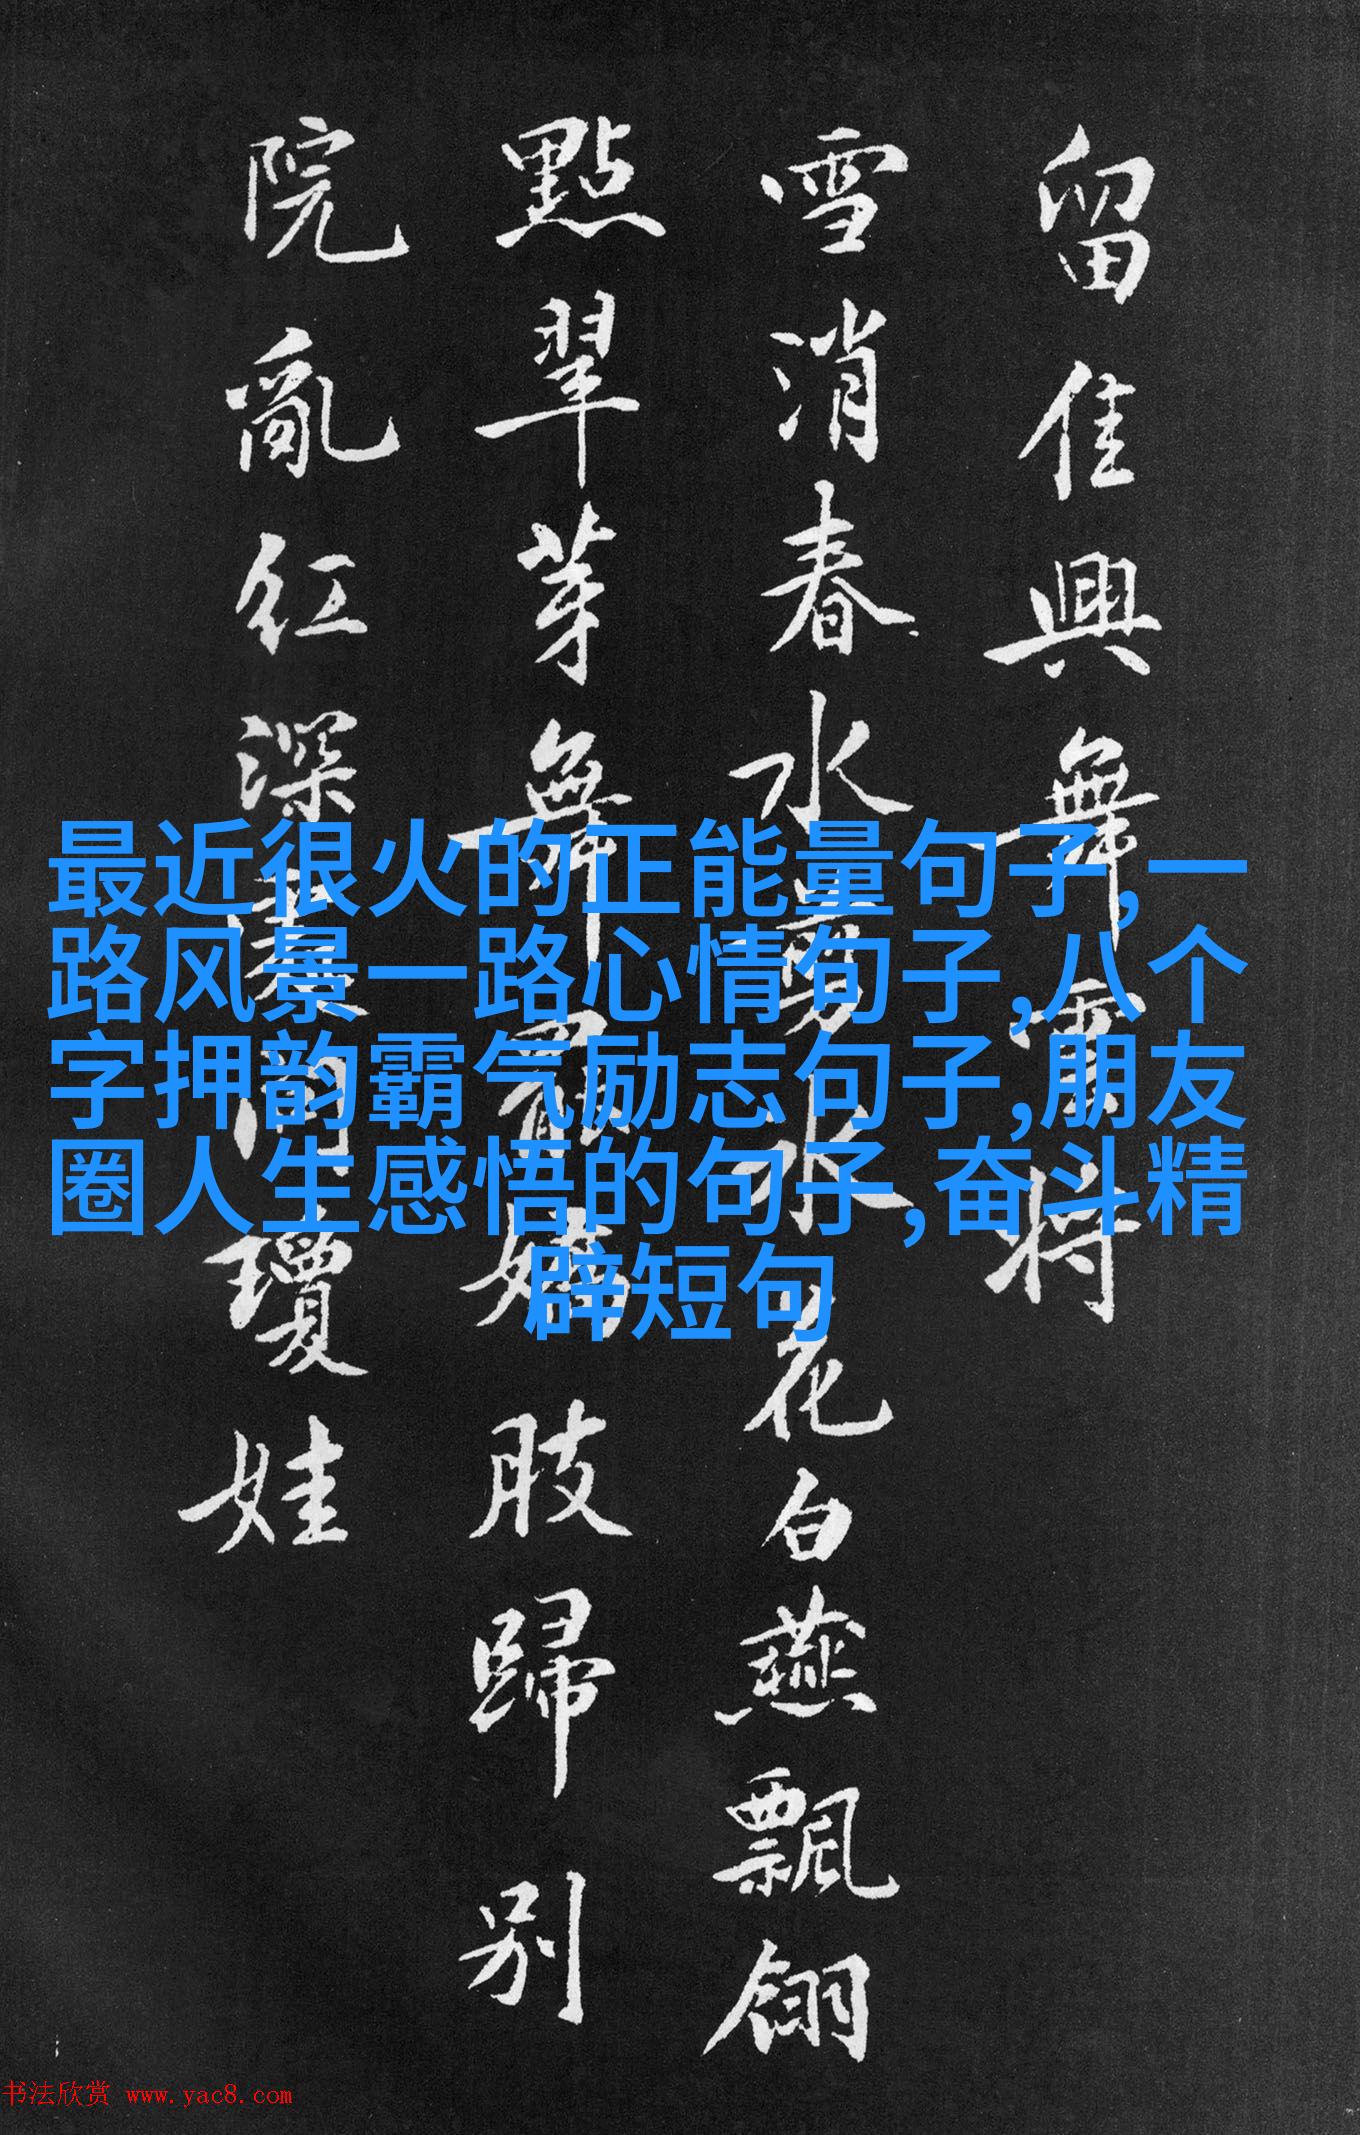 留佳興舞霅將
雪消春水夢水花白燕飄翎
點翠芽舞罷嬌肢歸别
院亂紅深裹問瓊娃
最近很火的正能量句子,一
路风景一路心情句子,八个
字押韵霸气励志句子,朋友
圈人生感悟的句子,奋斗精
辟短句
书法欣赏 www.yac8.com